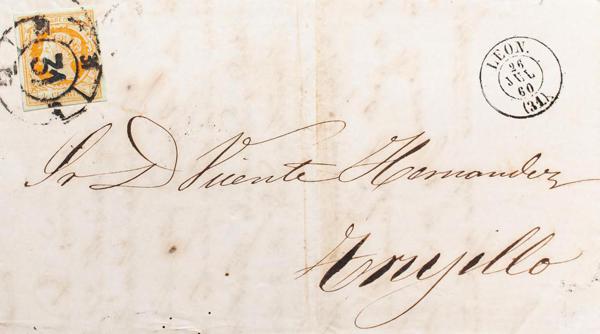 LEON.
26
JUL
60
(31).
Sr D Vicente Hernandez
Trujillo